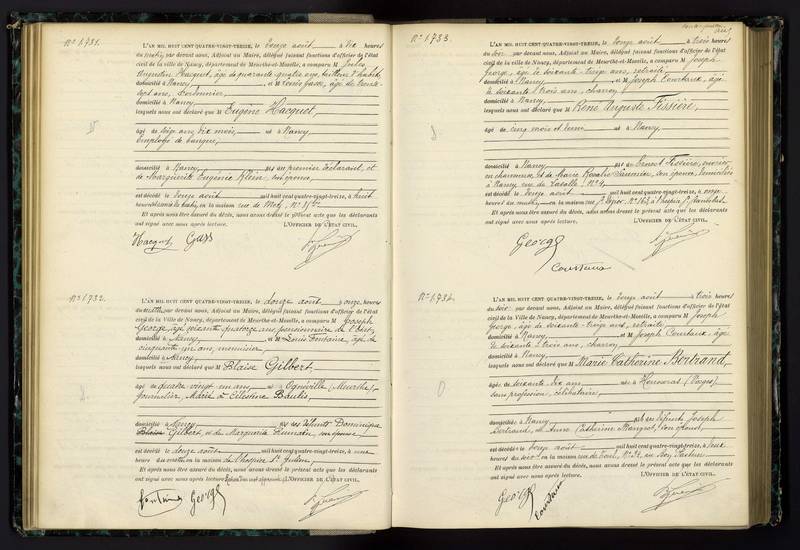 N° 1.731.
L'AN MIL HUIT CENT QUATRE-VINGT-TREIZE, le douze août à dix heures
du matin, par devant nous, Adjoint au Maire, délégué faisant fonctions d'officier de l'état
civil de la ville de Nancy, département de Meurthe-et-Moselle, a comparu M Jules
Augustin Hacquet, âgé de quarante quatre ans, tailleur d'habits
domicilié à Nancy, et M Gass, âgé de trente
sept ans,
domicilié à Nancy
lesquels nous ont déclaré que M Eugène Hacquet,
âgé de seize ans, dix mois, né à Nancy
employé de banque,
domicilié à Nancy fils du premier déclarant, et
de Marguerite Eugénie Klein, son épouse,
est décédé le douze août mil huit cent quatre-vingt-treize, à huit
heures du matin, en la maison rue de Metz, N°
Et après nous être assuré du décès, nous avons dressé le présent acte que les déclarants
ont signé avec nous après lecture. L'OFFICIER DE L'ÉTAT CIVIL.
Hacquet Gass
N° 1.732.
L'AN MIL HUIT CENT QUATRE-VINGT-TREIZE, le douze août à onze heures
du matin, par devant nous, Adjoint au Maire, délégué faisant fonctions d'officier de l'état
civil de la Ville de Nancy, département de Meurthe-et-Moselle, a comparu M Joseph
George, âgé soixante quatorze ans, pensionnaire de l'État,
domicilié à Nancy, et M Louis Fontaine, âgé de
cinquante un ans, menuisier
domicilié à Nancy
lesquels nous ont déclaré que M Blaise Gilbert,
âgé de quatre vingt un ans né à Ognéville (Meurthe),
journalier, Marié à Célestine Baulis,
domicilié à Nancy fils des défunts Dominique
Gilbert, et de Marguerite Humain, son épouse,
est décédé le douze août mil huit cent quatre-vingt-treize, à une
heure du matin, en la maison de l'hospice St Julien,
Et après nous être assuré du décès, nous avons dressé le présent acte que les déclarants
ont signé avec nous après lecture. L'OFFICIER DE L'ÉTAT CIVIL.
Fontaine George
N° 1.733.
L'AN MIL HUIT CENT QUATRE-VINGT-TREIZE, le douze août à trois heures
du soir, par devant nous, Adjoint au Maire, délégué faisant fonctions d'officier de l'état
civil de la ville de Nancy, département de Meurthe-et-Moselle, a comparu M Joseph
George, âgé de soixante ans, retraité
domicilié à Nancy et M Joseph Courtaux, âgé
de soixante trois ans, charron
domicilié à Nancy
lesquels nous ont déclaré que M René Auguste Fissière,
âgé de cinq mois et demi né à Nancy
domicilié à Nancy fils de Ernest Fissière, ouvrier
en chaussures, et de Marie Rosalie son épouse, domiciliés
à Nancy rue de
est décédé le douze août mil huit cent quatre-vingt-treize, à onze
heures du matin en la maison rue
Et après nous être assuré du décès, nous avons dressé le présent acte que les déclarants
ont signé avec nous après lecture. L'OFFICIER DE L'ÉTAT CIVIL.
George
Courtaux
N° 1.734.
L'AN MIL HUIT CENT QUATRE-VINGT-TREIZE, le douze août à trois heures
du soir, par devant nous, Adjoint au Maire, délégué faisant fonctions d'officier de l'état
civil de la Ville de Nancy, département de Meurthe-et-Moselle, a comparu M Joseph
George, âgé de soixante ans, retraité
domicilié à Nancy et M Joseph Courtaux, âgé
de soixante trois ans, charron
domicilié à Nancy
lesquels nous ont déclaré que M Marie Catherine Bertrand,
âgée de soixante dix ans née à (Vosges)
sans profession, célibataire
domicilié à Nancy fille des défunts Joseph
Bertrand, et Anne Catherine Mangeot, son épouse,
est décédé le douze août mil huit cent quatre-vingt-treize, à
heures du soir en la maison rue de Toul,
Et après nous être assuré du décès, nous avons dressé le présent acte que les déclarants
ont signé avec nous après lecture. L'OFFICIER DE L'ÉTAT CIVIL.
George
Courtaux